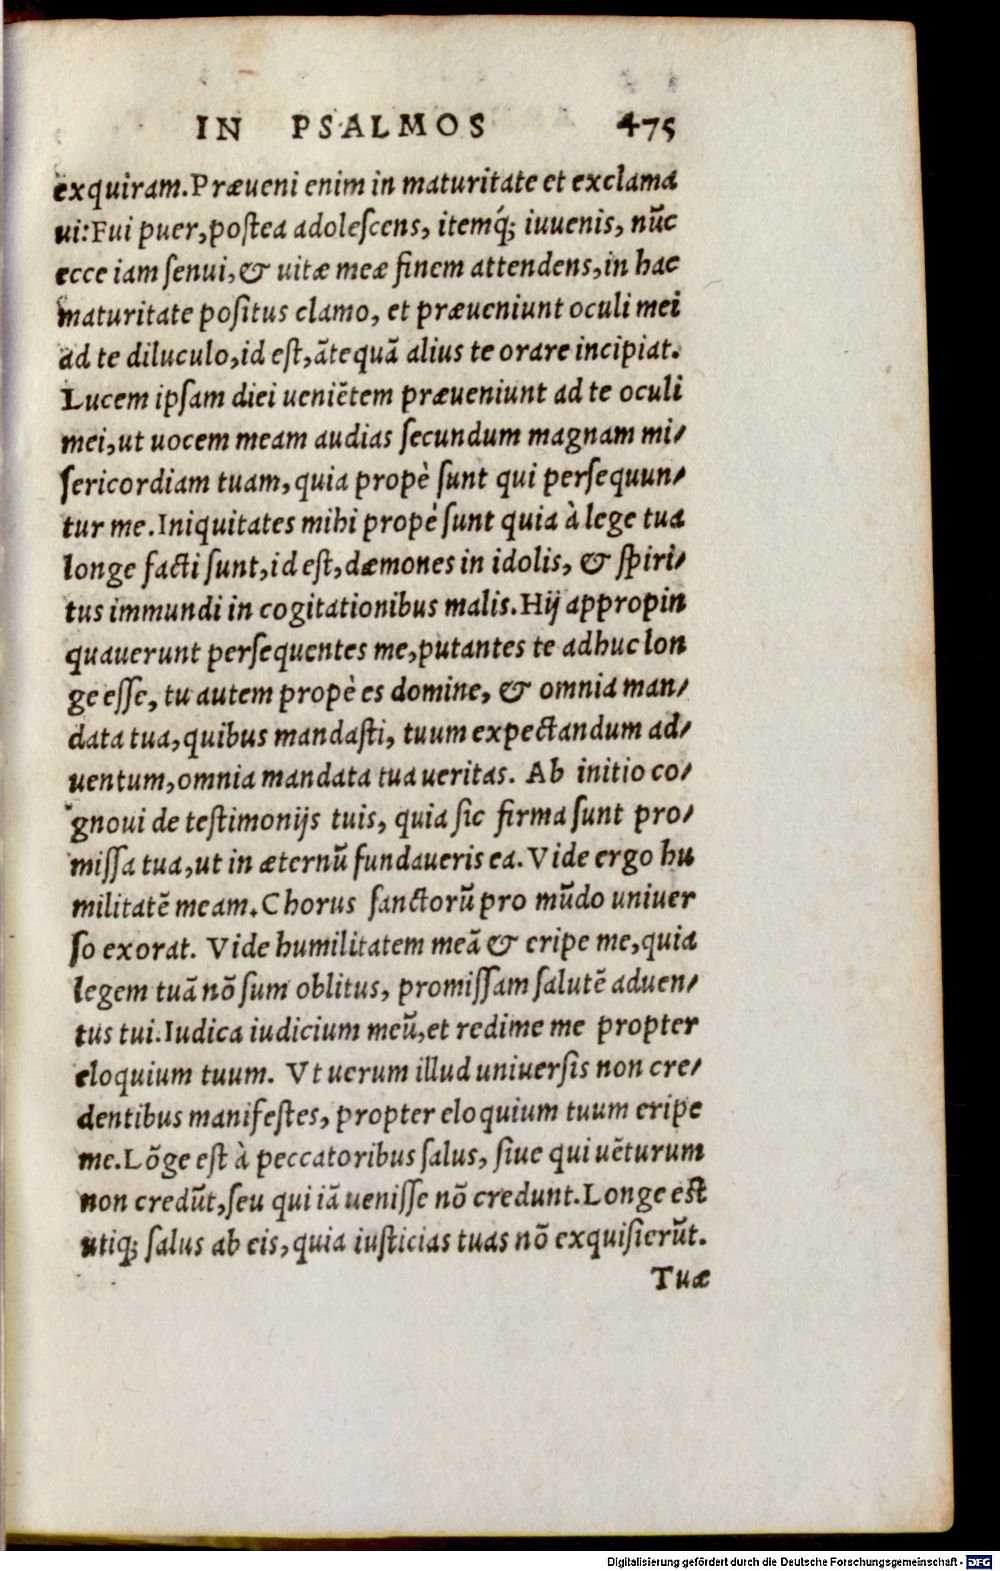 IN PSALMOS 475
exquiram. Præueni enim in maturitate et exclama
ui: Fui puer, postea adolescens, itemq́; iuuenis, nūc
ecce iam senui, & uitæ meæ finem attendens, in hac
maturitate positus clamo, et præueniunt oculi mei
ad te diluculo, id est, ātequā alius te orare incipiat.
Lucem ipsam diei ueniētem præueniunt ad te oculi
mei, ut uocem meam audias secundum magnam mi-
sericordiam tuam, quia propè sunt qui persequun-
tur me. Iniquitates mihi propè sunt quia à lege tua
longe facti sunt, id est, dæmones in idolis, & spiri-
tus immundi in cogitationibus malis. Hij appropin
quauerunt persequentes me, putantes te adhuc lon
ge esse, tu autem propè es domine, & omnia man-
data tua, quibus mandasti, tuum expectandum ad-
uentum, omnia mandata tua ueritas. Ab initio co-
gnoui de testimonijs tuis, quia sic firma sunt pro-
missa tua, ut in æternū fundaueris ea. Vide ergo hu
militatē meam. Chorus sanctorū pro mūdo uniuer
so exorat. Vide humilitatem meā & eripe me, quia
legem tuā nō sum oblitus, promissam salutē aduen-
tus tui. Iudica iudicium meū, et redime me propter
eloquium tuum. Vt uerum illud uniuersis non cre-
dentibus manifestes, propter eloquium tuum eripe
me. Lōge est à peccatoribus salus, siue qui uēturum
non credūt, seu qui iā uenisse nō credunt. Longe est
utiq; salus ab eis, quia iusticias tuas nō exquisierūt.
Tuæ
Digitalisierung gefördert durch die Deutsche Forschungsgemeinschaft - DFG